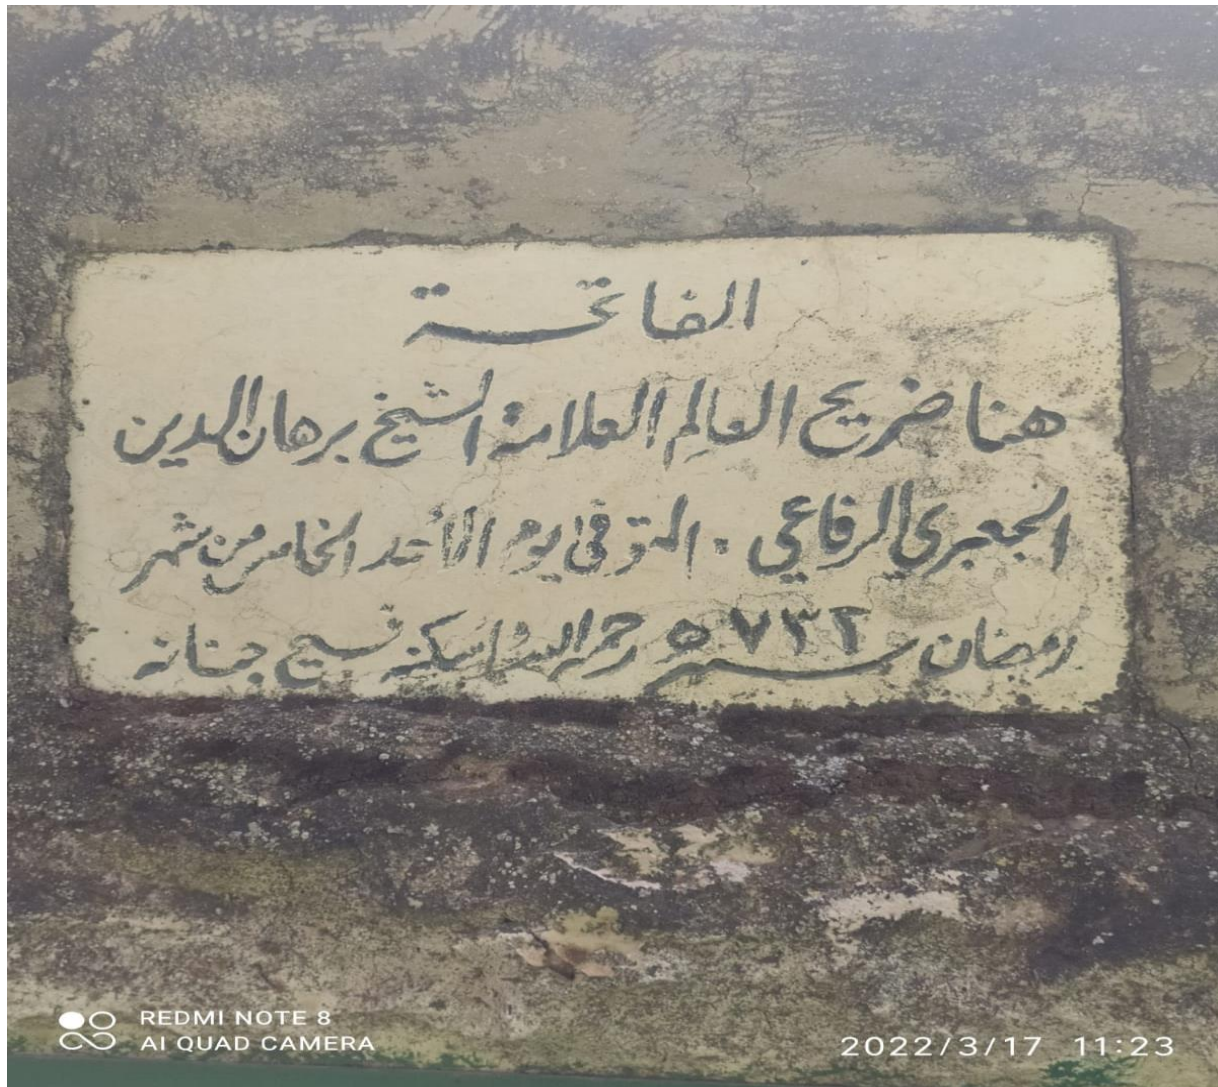 الفاتحة
هنا ضريح العالم العلامة الشيخ برهان الدين
الجعبري الرفاعي . المتوفى يوم الأحد الخامس من شهر
رمضان سنة ٧٣٢ ه رحمه الله وأسكنه فسيح جنانه
REDMI NOTE 8
AI QUAD CAMERA
2022/3/17 11:23